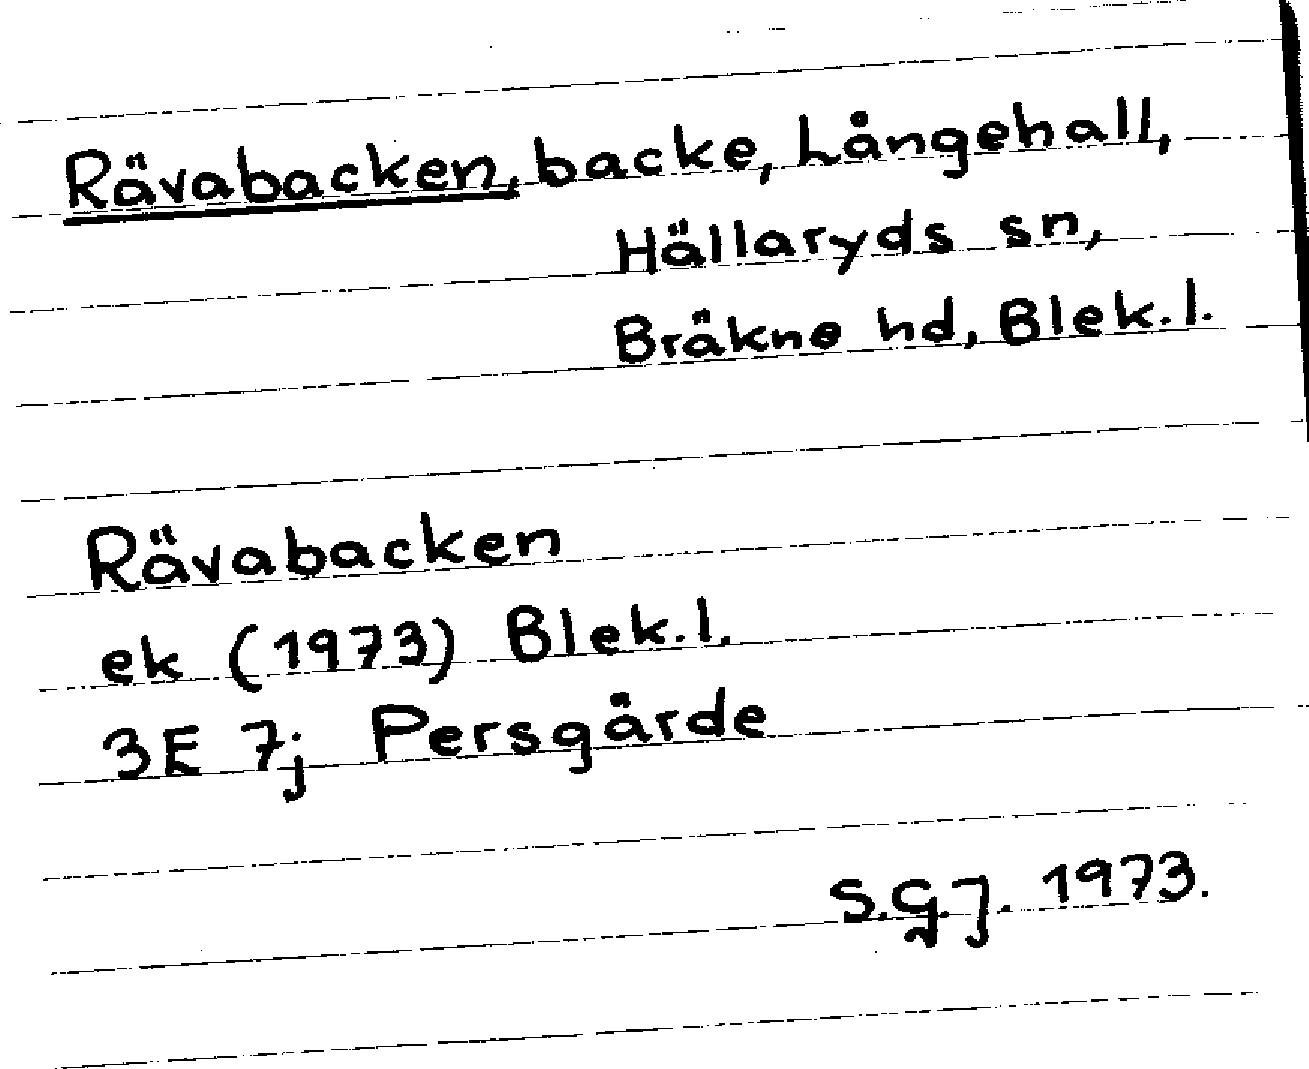 Rävabacken, backe, Långehall,
Hällaryds sn,
Bräkne hd, Blek.l.
Rävabacken
ek (1973) Blek.l.
3E 7j Persgärde
S.G.J. 1973.